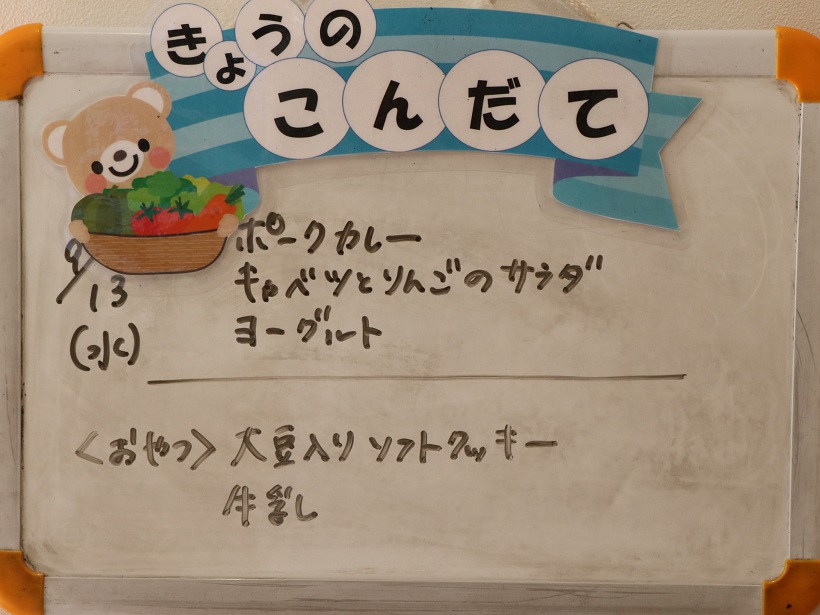 きょうの
こんだて
9/13
(水)
ポークカレー
キャベツとりんごのサラダ
ヨーグルト
<おやつ> 大豆入りソフトクッキー
牛乳